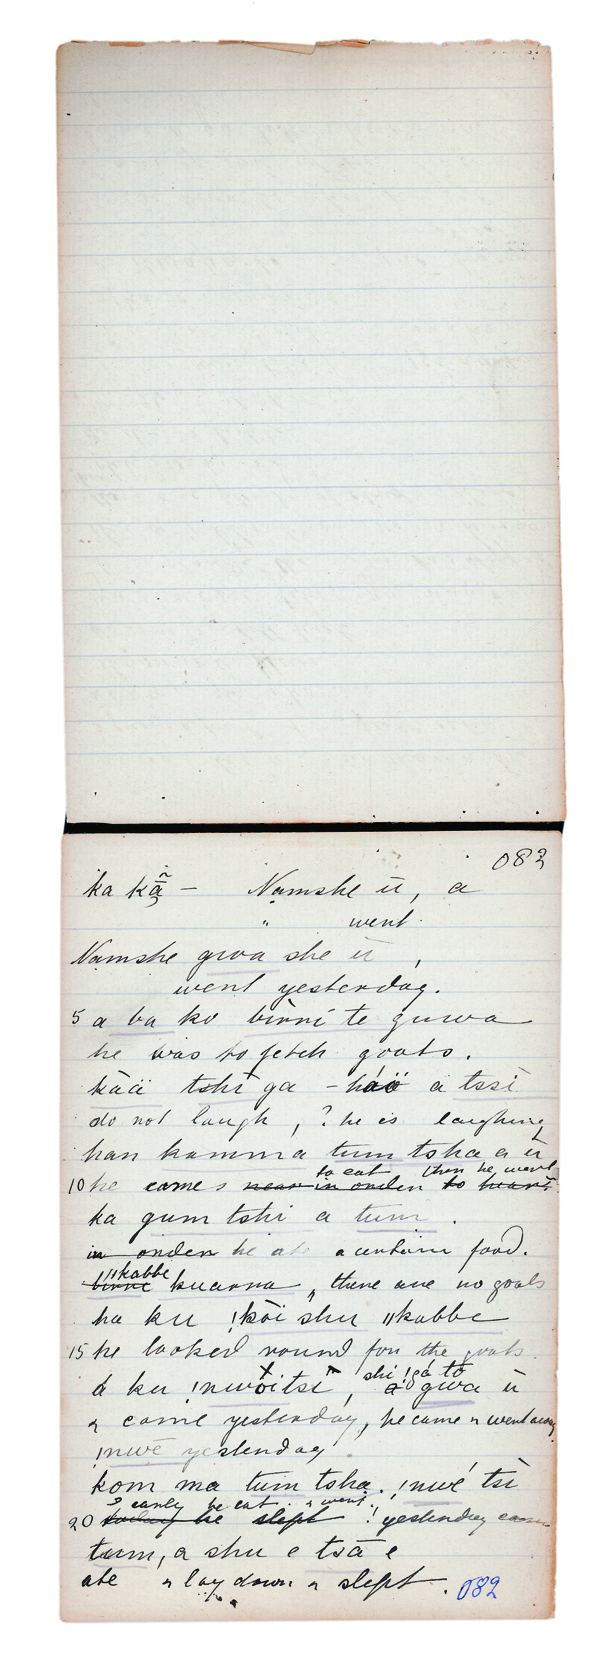 082
ka kã – Namshe ū, a
" went.
Namshe gwa she ū ,
went yesterday.
5 a ba ko birri te guwa
he was to fetch goats.
kāä tshi ga – háö a tssi
do not laugh, ? he is laughing
han kamma tum tsha a ū
to eat then he went
10 he came s near in order to hunt
ka gum tshi a tum .
in order he ate a certain food.
ǁkabbe
birri kuarra " there are no goats
ha ku !kōi shu ǁkabbe
15 he looked round for the goats
shi !gá to
á ku !nwoitsi , a gwa ū
" came yesterday, he came " went away
!nwē yesterday
kom ma tum tsha. !nwé tsi
? early he eat . " went.
20 today he slept ! yesterday came
tum, a shu e tsā e
ate " lay down " slept . 082